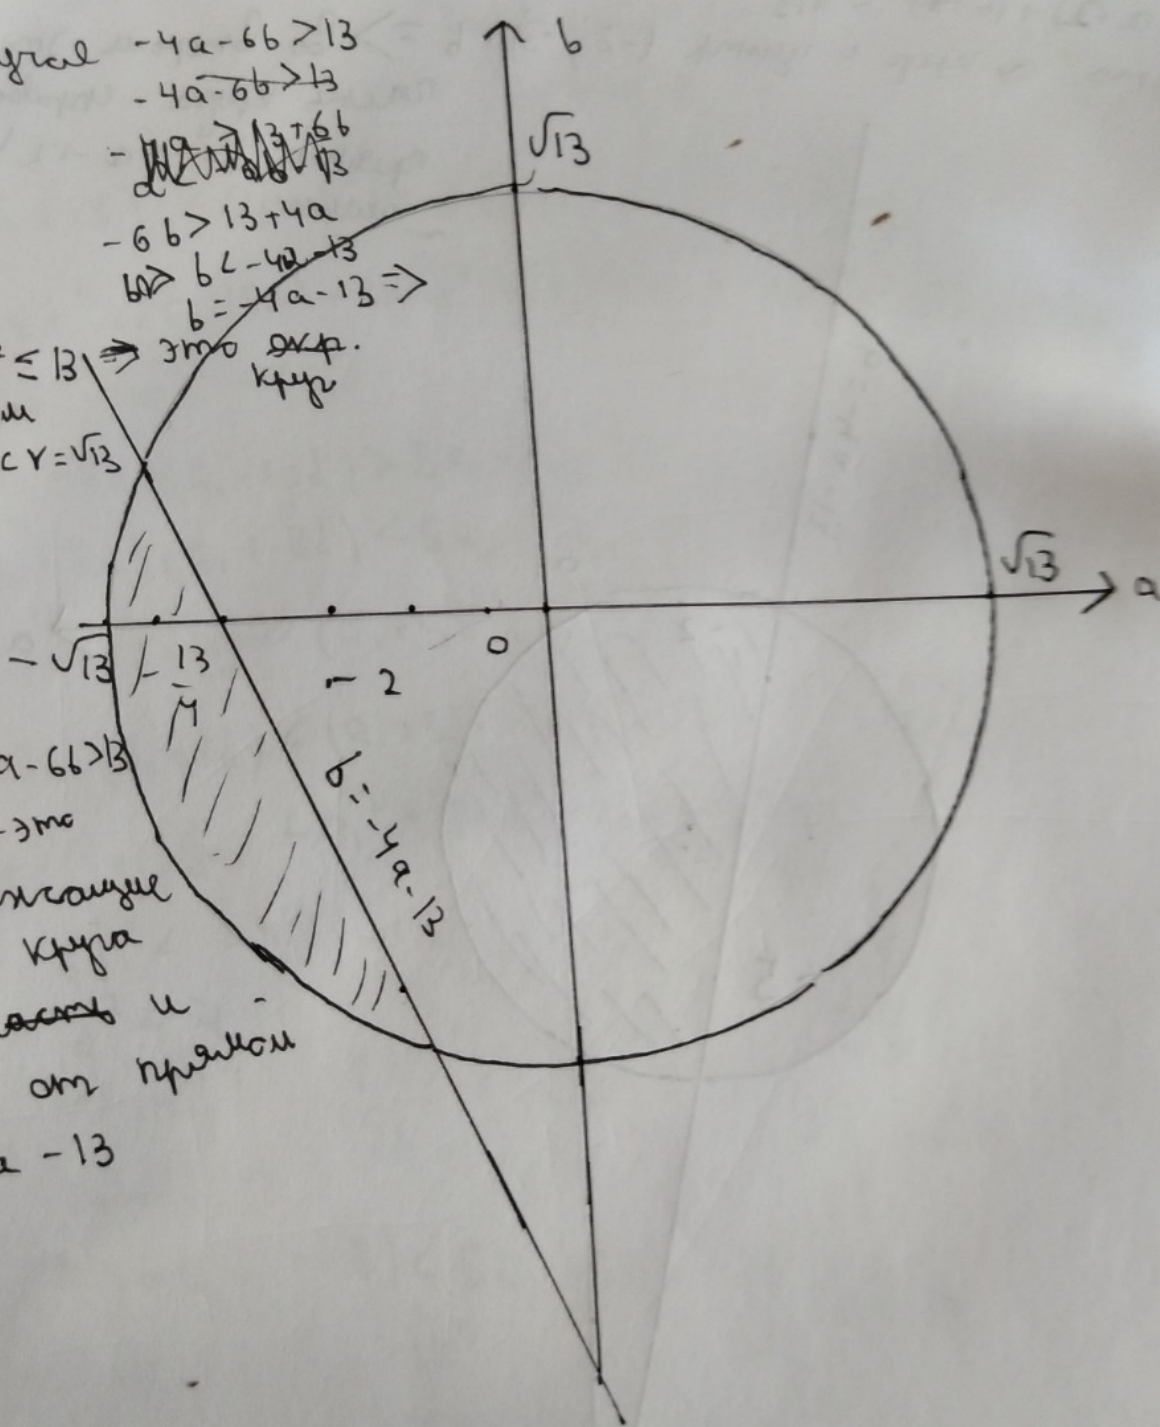 -4a-6b>13
-4a-6b>13
-6b>13+4a
b< -4a-13
b=-4a-13 =>
≤ 13 => это окр.
круг
с r=√13
b
√13
√13
a
0
-√13
-13/4
-2
b=-4a-13
a-6b>13
-это
круга
и
от прямой
-13